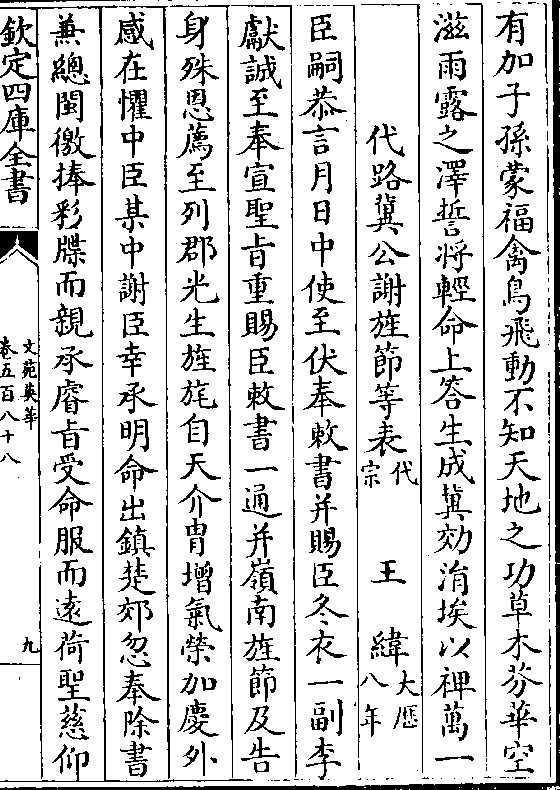 有加子孫蒙福禽鳥飛動不知天地之功草木芬華空
滋雨露之澤誓將輕命上答生成冀効涓埃以裨萬一
代路冀公謝旌節等表代宗 王緯大歷八年
臣嗣恭言月日中使至伏奉敕書并賜臣冬衣一副李
獻誠至奉宣聖旨重賜臣敕書一通并嶺南旌節及告
身殊恩薦至列郡光生旌旄自天介胄增氣榮加慶外
感在懼中臣某中謝臣幸承明命出鎮楚郊忽奉除書
兼總閩徼捧彩牒而親承睿旨受命服而遠荷聖慈仰
欽定四庫全書
文苑英華
卷五百八十八
九